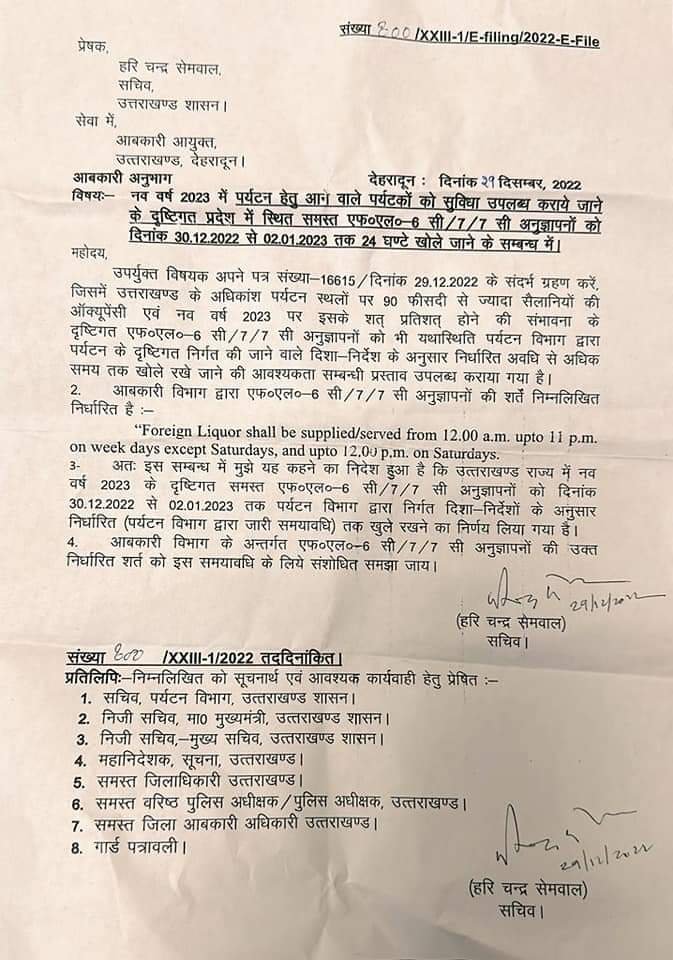 संख्या 800/XXIII-1/E-filing/2022-E-File
प्रेषक,
हरि चन्द्र सेमवाल,
सचिव,
उत्तराखण्ड शासन।
सेवा में,
आबकारी आयुक्त,
उत्तराखण्ड, देहरादून।
आबकारी अनुभाग देहरादून : दिनांक 29 दिसम्बर, 2022
विषयः– नव वर्ष 2023 में पर्यटन हेतु आने वाले पर्यटकों को सुविधा उपलब्ध कराये जाने
के दृष्टिगत प्रदेश में स्थित समस्त एफ०एल०–6 सी/7/7 सी अनुज्ञापनों को
दिनांक 30.12.2022 से 02.01.2023 तक 24 घण्टे खोले जाने के सम्बन्ध में।
महोदय,
उपर्युक्त विषयक अपने पत्र संख्या–16615/दिनांक 29.12.2022 के संदर्भ ग्रहण करें,
जिसमें उत्तराखण्ड के अधिकांश पर्यटन स्थलों पर 90 फीसदी से ज्यादा सैलानियों की
ऑक्यूपेंसी एवं नव वर्ष 2023 पर इसके शत् प्रतिशत् होने की संभावना के
दृष्टिगत एफ०एल०–6 सी/7/7 सी अनुज्ञापनों को भी यथास्थिति पर्यटन विभाग द्वारा
पर्यटन के दृष्टिगत निर्गत की जाने वाले दिशा–निर्देश के अनुसार निर्धारित अवधि से अधिक
समय तक खोले रखे जाने की आवश्यकता सम्बन्धी प्रस्ताव उपलब्ध कराया गया है।
2. आबकारी विभाग द्वारा एफ०एल०–6 सी/7/7 सी अनुज्ञापनों की शर्ते निम्नलिखित
निर्धारित है :–
“Foreign Liquor shall be supplied/served from 12.00 a.m. upto 11 p.m.
on week days except Saturdays, and upto 12.00 p.m. on Saturdays.
3- अतः इस सम्बन्ध में मुझे यह कहने का निदेश हुआ है कि उत्तराखण्ड राज्य में नव
वर्ष 2023 के दृष्टिगत समस्त एफ०एल०–6 सी/7/7 सी अनुज्ञापनों को दिनांक
30.12.2022 से 02.01.2023 तक पर्यटन विभाग द्वारा निर्गत दिशा–निर्देशों के अनुसार
निर्धारित (पर्यटन विभाग द्वारा जारी समयावधि) तक खुले रखने का निर्णय लिया गया है।
4. आबकारी विभाग के अन्तर्गत एफ०एल०–6 सी/7/7 सी अनुज्ञापनों की उक्त
निर्धारित शर्त को इस समयावधि के लिये संशोधित समझा जाय।
29/12/2022
(हरि चन्द्र सेमवाल)
सचिव।
संख्या 800 /XXIII-1/2022 तद्दिनांकित।
प्रतिलिपिः–निम्नलिखित को सूचनार्थ एवं आवश्यक कार्यवाही हेतु प्रेषित :–
1. सचिव, पर्यटन विभाग, उत्तराखण्ड शासन।
2. निजी सचिव, मा0 मुख्यमंत्री, उत्तराखण्ड शासन।
3. निजी सचिव,–मुख्य सचिव, उत्तराखण्ड शासन।
4. महानिदेशक, सूचना, उत्तराखण्ड।
5. समस्त जिलाधिकारी उत्तराखण्ड।
6. समस्त वरिष्ठ पुलिस अधीक्षक/पुलिस अधीक्षक, उत्तराखण्ड।
7. समस्त जिला आबकारी अधिकारी उत्तराखण्ड।
8. गार्ड पत्रावली।
29/12/2022
(हरि चन्द्र सेमवाल)
सचिव।